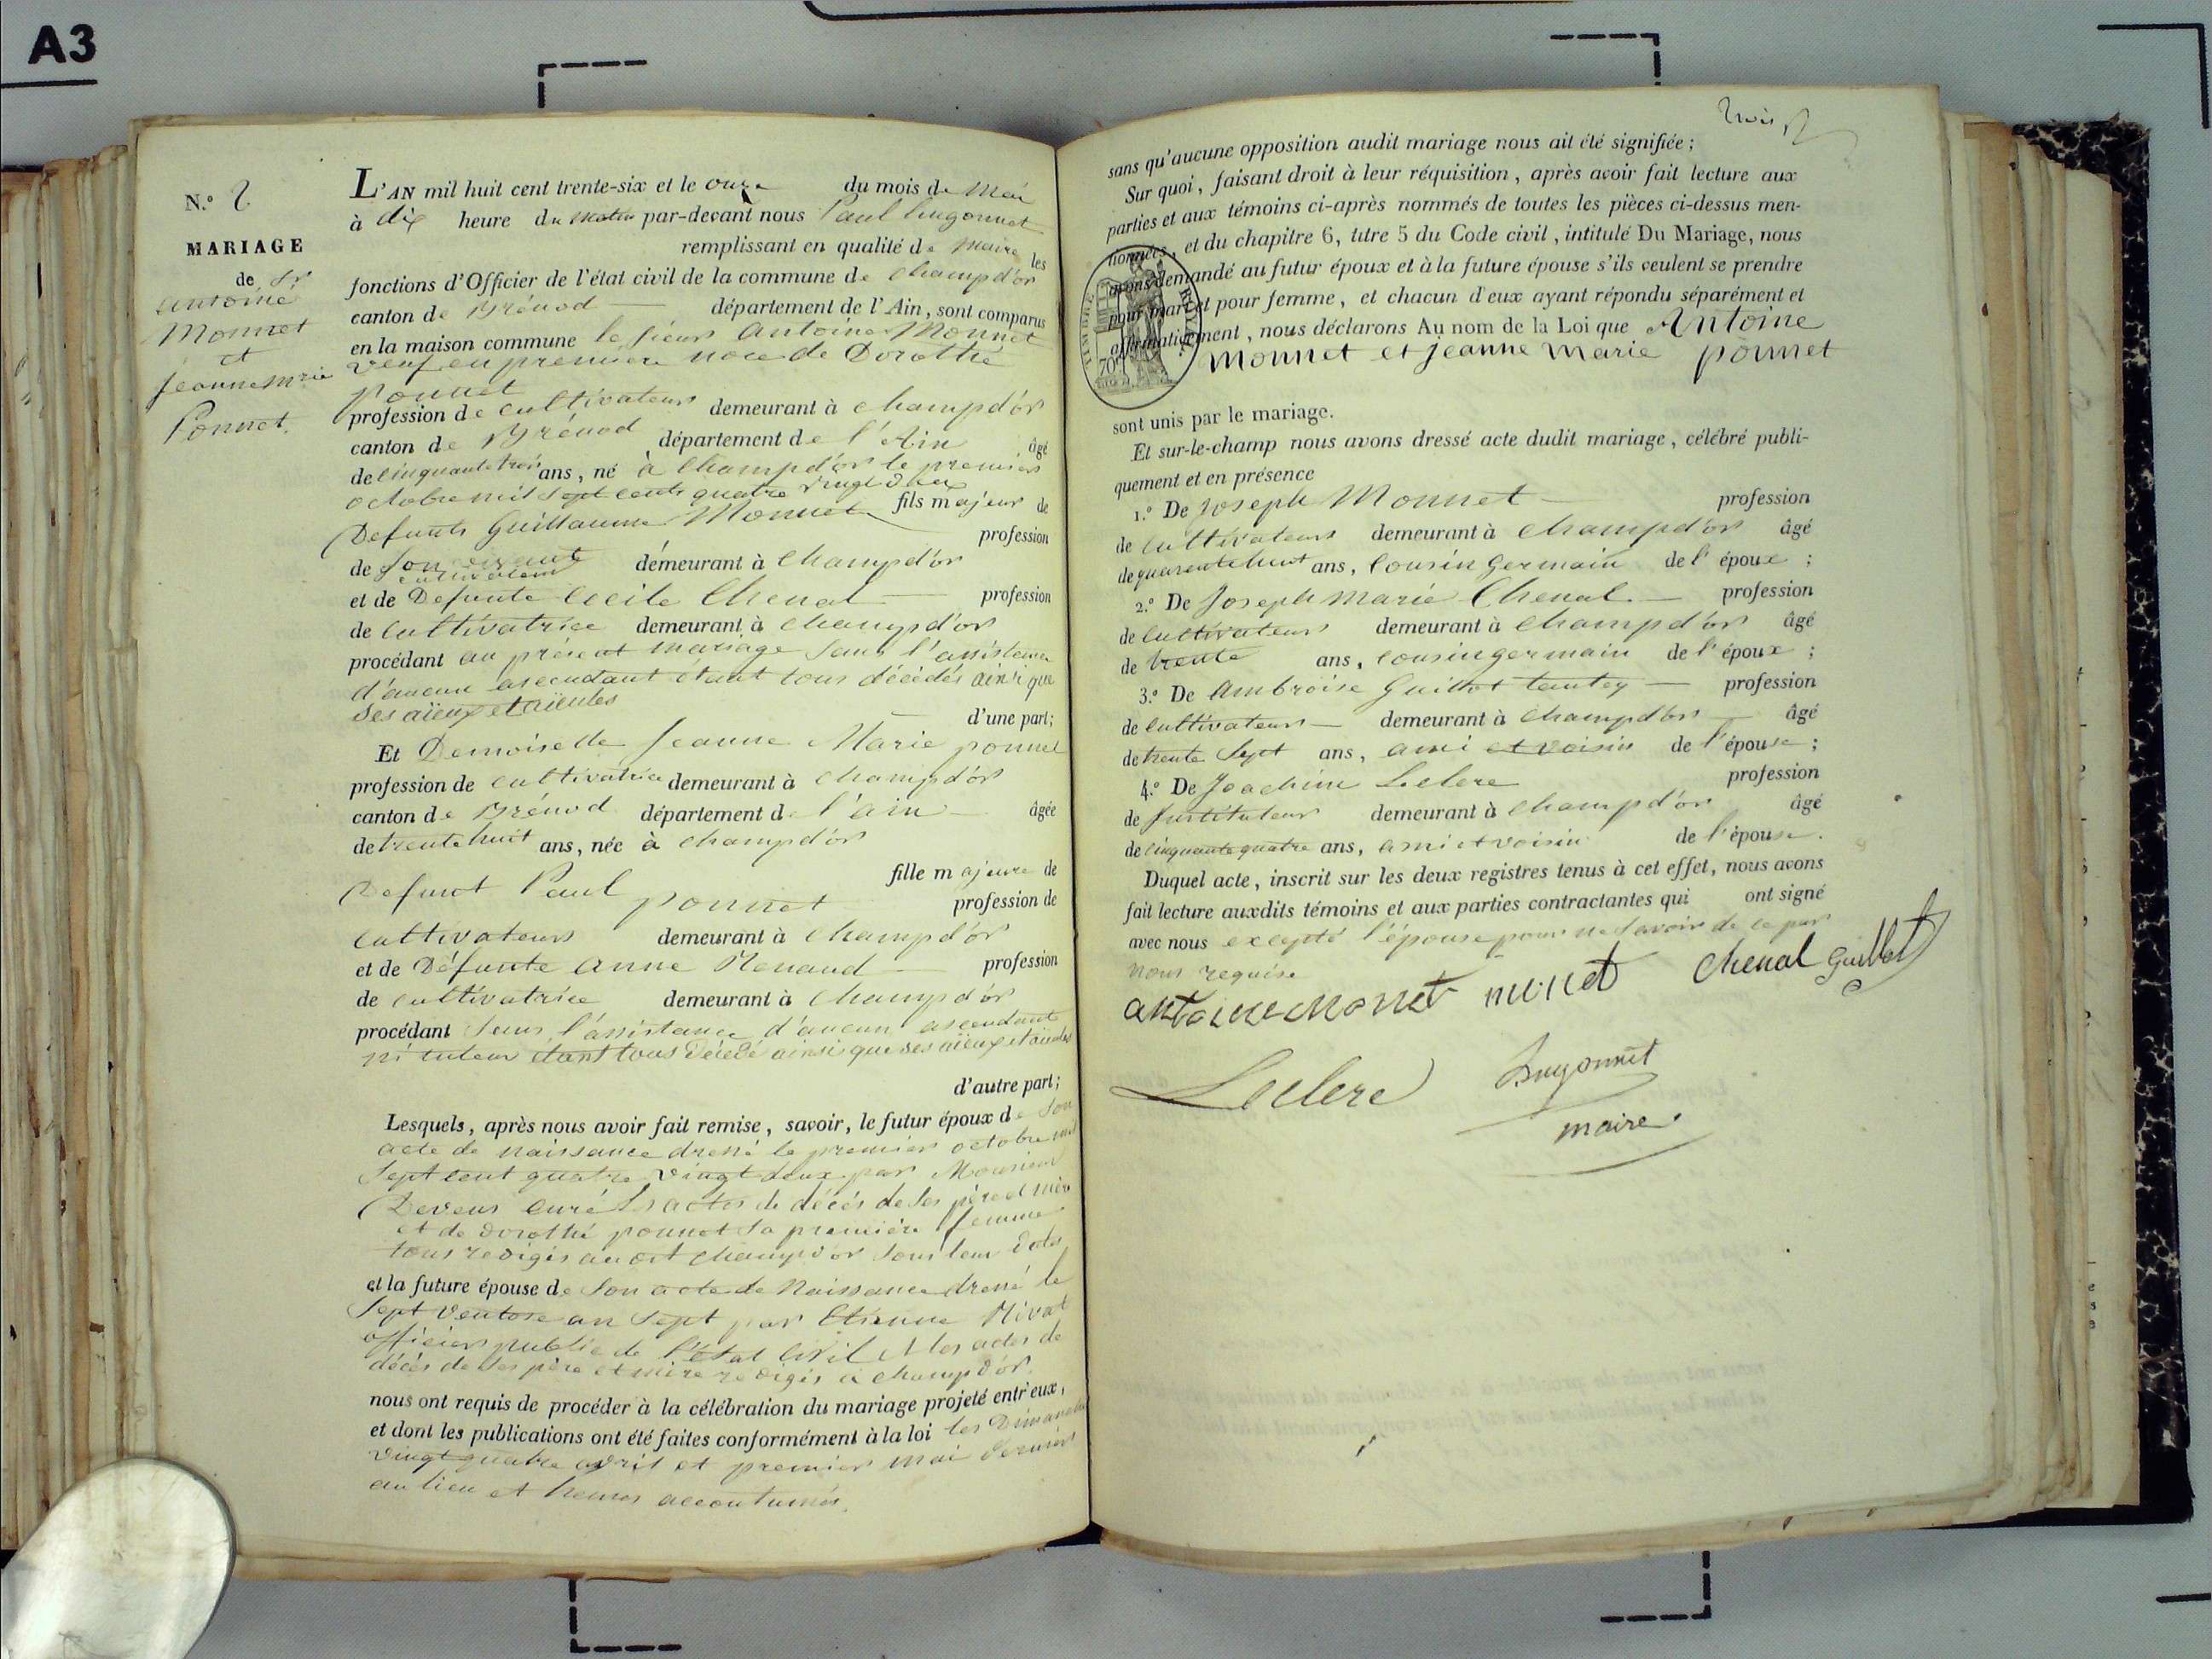 A3
N.° 2
MARIAGE
de Sr
antoine
Monnet
et
jeanne mrie
Ponnet.
L'AN mil huit cent trente-six et le onze du mois de Mai
à dix heure du matin par-devant nous Paul
remplissant en qualité de maire les
fonctions d'Officier de l'état civil de la commune de champd'or
canton de Brénod département de l'Ain, sont comparus
en la maison commune le sieur Antoine Monnet
veuf en premiere noce de Dorothé
ponnet
profession de cultivateur demeurant à champd'or
canton de Brénod département de l'Ain âgé
de cinquante trois ans, né à Champd'or le premier
octobre mil sept cents quatre vingt deux
fils majeur de
Defunts Guillaume Monnet profession
de son vivant
cultivateur demeurant à Champd'or
et de Defunte Cecile Chenal profession
de Cultivatrice demeurant à Champd'or
procédant au présent mariage sans l'assistance
d'aucun ascendant étant tous décédés ainsi que
ses aïeux et aïeules
d'une part;
Et Demoiselle Jeanne Marie ponnet
profession de cultivatrice demeurant à Champd'or
canton de Brénod département de l'ain âgée
de trente huit ans, née à champd'or
fille majeure de
Defunt Paul ponnet profession de
Cultivateur demeurant à Champd'or
et de Défunte Anne Renaud profession
de cultivatrice demeurant à Champd'or
procédant sans l'assistance d'aucun ascendant
ni tuteur étant tous décédé ainsi que ses aïeux et aïeules
d'autre part;
Lesquels, après nous avoir fait remise, savoir, le futur époux de son
acte de naissance dressé le premier octobre mil
sept cent quatre vingt deux par Monsieur
curé actes de décès de ses père et mère
et de Dorothé ponnet sa première femme
tous redigés au dit champd'or sous leur date
et la future épouse de son acte de Naissance dressé le
sept ventose an sept par Etienne Rivat
officier public de l'état civil et les actes de
décès de ses père et mère redigés à champd'or.
nous ont requis de procéder à la célébration du mariage projeté entr'eux,
et dont les publications ont été faites conformément à la loi les Dimanches
vingt quatre avril et premier mai dernier
au lieu et heures accoutumés.
trois
sans qu'aucune opposition audit mariage nous ait été signifiée;
Sur quoi, faisant droit à leur réquisition, après avoir fait lecture aux
parties et aux témoins ci-après nommés de toutes les pièces ci-dessus men-
tionnées, et du chapitre 6, titre 5 du Code civil, intitulé Du Mariage, nous
avons demandé au futur époux et à la future épouse s'ils veulent se prendre
pour mari et pour femme, et chacun d'eux ayant répondu séparément et
affirmativement, nous déclarons Au nom de la Loi que Antoine
Monnet et jeanne marie ponnet
TIMBRE ROYAL
70c
sont unis par le mariage.
Et sur-le-champ nous avons dressé acte dudit mariage, célébré publi-
quement et en présence
1.° De Joseph Monnet profession
de Cultivateur demeurant à Champd'or âgé
de quarente huit ans, Cousin Germain de l'époux;
2.° De Joseph Marie Chenal profession
de Cultivateur demeurant à Champd'or âgé
de trente ans, cousin germain de l'époux;
3.° De Ambroise Guillot profession
de cultivateur demeurant à Champd'or âgé
de trente sept ans, ami et voisin de l'épouse;
4.° De Joachim Leclerc profession
de Instituteur demeurant à Champd'or âgé
de cinquante quatre ans, ami et voisin de l'épouse.
Duquel acte, inscrit sur les deux registres tenus à cet effet, nous avons
fait lecture auxdits témoins et aux parties contractantes qui ont signé
avec nous excepté l'épouse pour ne savoir de ce par
nous requise
antoine monnet monet Chenal Guillot
Leclerc
maire